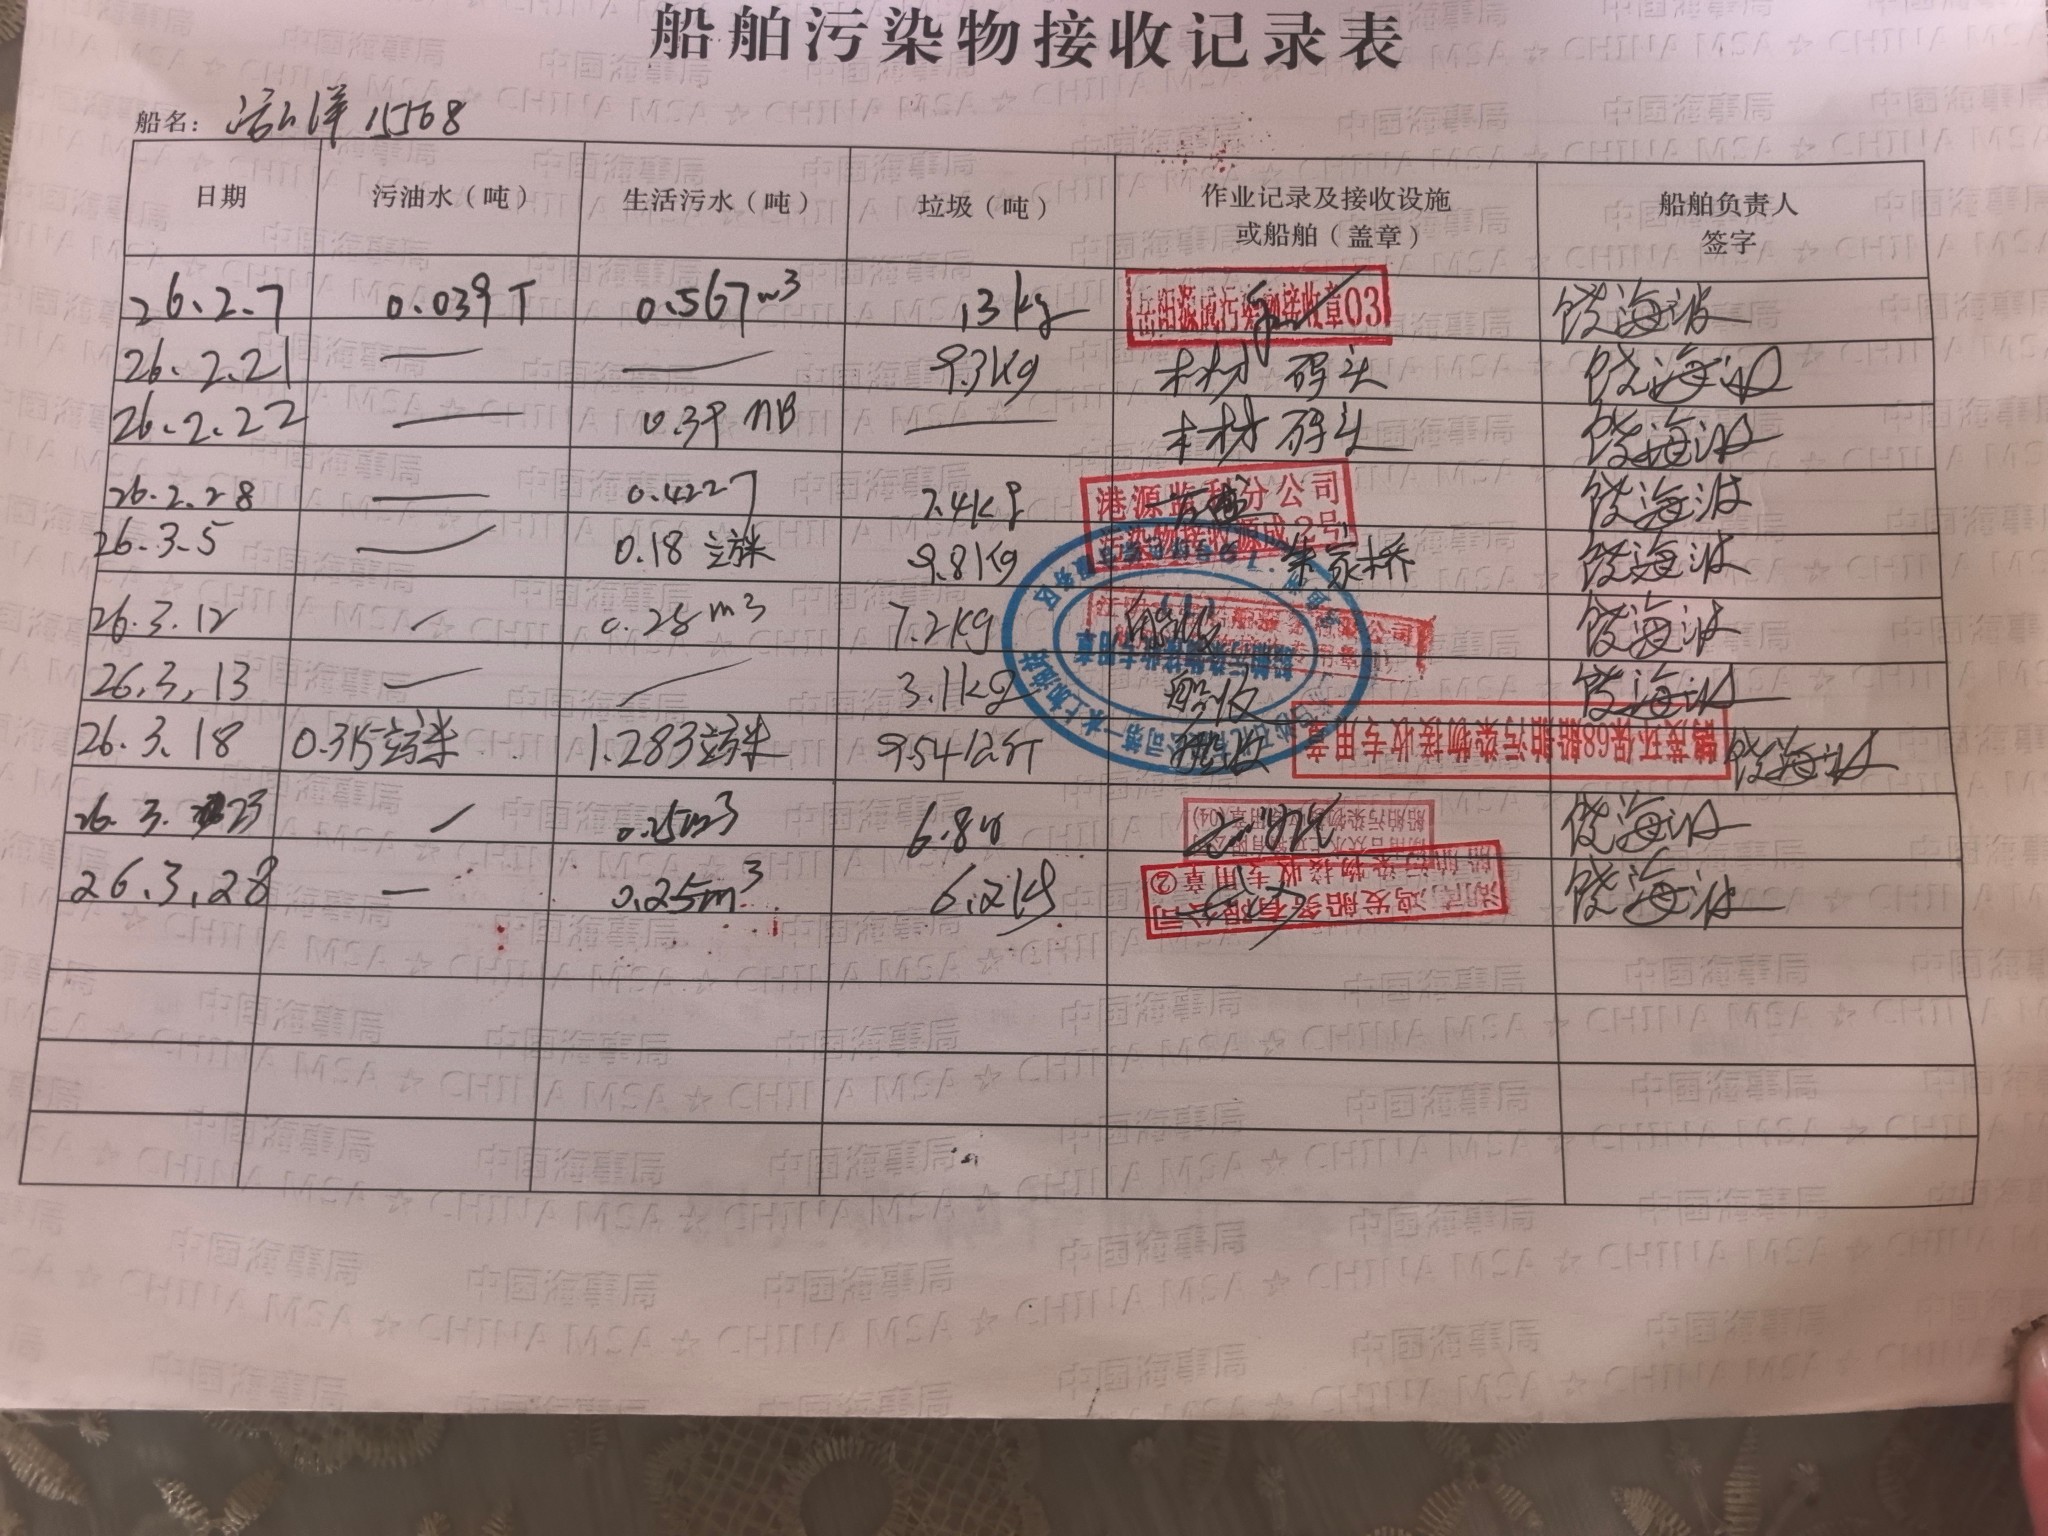 船舶污染物接收记录表
船名： 洋 15568
日期 污油水（吨） 生活污水（吨） 垃圾（吨） 作业记录及接收设施或船舶（盖章） 船舶负责人签字
26.2.7 0.039T 0.567m3 13kg 岳阳源成污染物接收章03 饶海波
26.2.21 — — 9.3Kg 木材码头 饶海波
26.2.22 — 0.39 — 木材码头 饶海波
26.2.28 — 0.422T 7.4kg 港源监利分公司 污染物接收源成2号 饶海波
26.3.5 — 0.18立方米 9.8Kg 朱家桥 饶海波
26.3.12 — 0.28m3 7.2Kg 饶海波
26.3.13 — — 3.1kg 验收 饶海波
26.3.18 0.315立方米 1.283立方米 9.54公斤 环保68船舶污染物接收专用章 饶海波
26.3.23 — 0.25m3 6.8 饶海波
26.3.28 — 0.25m3 6.2kg 湖南鸿发船务有限公司 船舶污染物接收专用章② 饶海波
中国海事局
CHINA MSA